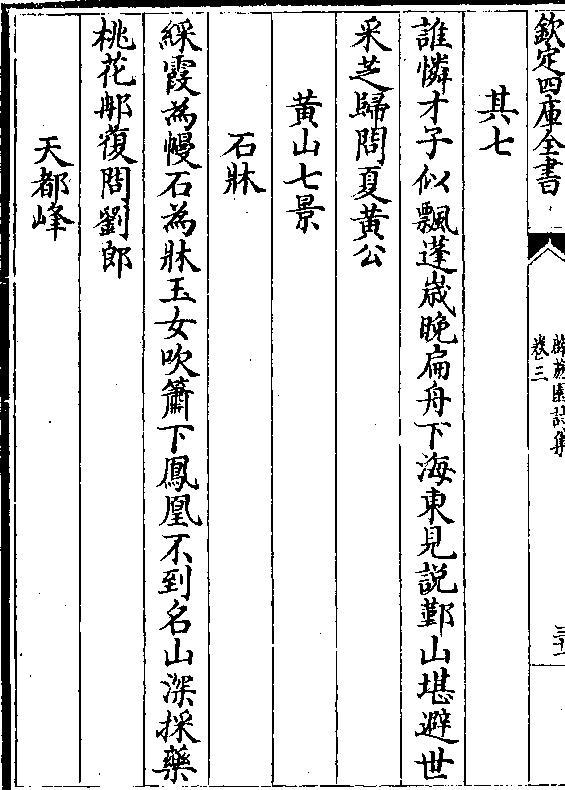 欽定四庫全書
薜荔園詩集
卷三
其七
誰憐才子似飄蓬嵗晚扁舟下海東見説鄞山堪避世
采芝歸問夏黄公
黄山七景
石牀
綵霞為幔石為牀玉女吹簫下鳳凰不到名山深採藥
桃花那復問劉郎
天都峰